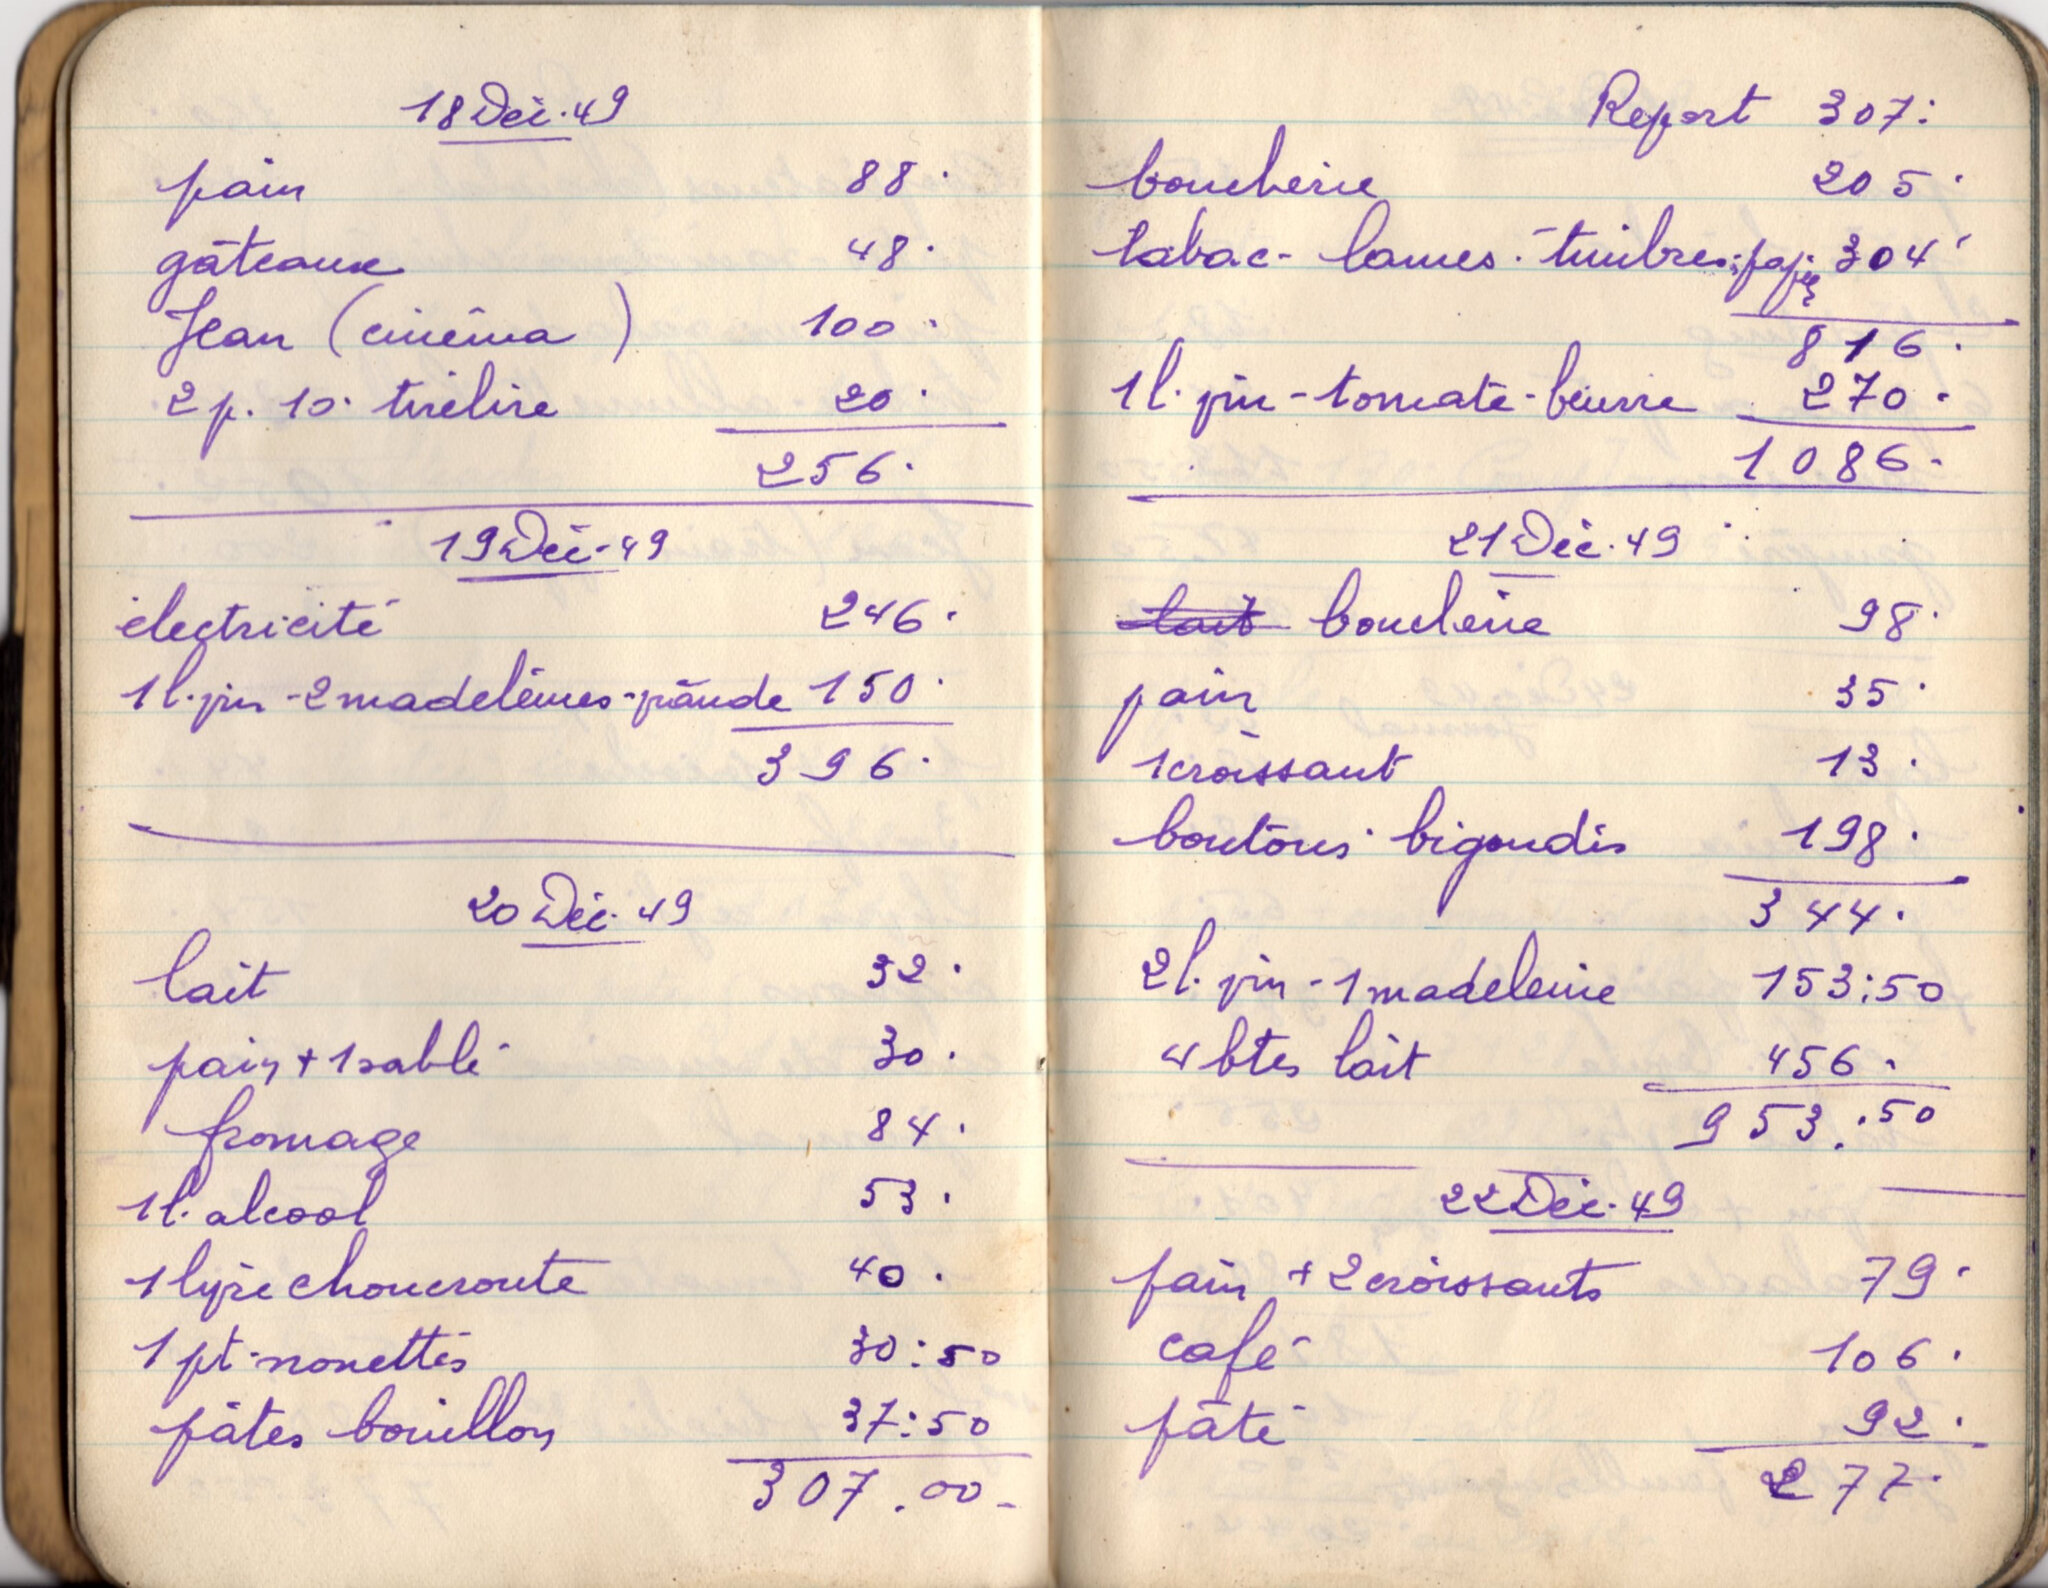 18 Déc. 49
pain 88.
gâteaux 48.
Jean (cinéma) 100.
2 p. 10. tirelire 20.
256.
19 Déc. 49
électricité 246.
1 l. pin - 2 madeleines - viande 150.
396.
20 Déc. 49
lait 32.
pain + 1 sablé 30.
fromage 84.
1 l. alcool 53.
1 choucroute 40.
1 pt. nonettes 30:50
pâtes bouillon 37:50
307.00-
Report 307:
boucherie 205.
tabac - lames - timbres 304.
816.
1 l. pin - tomate - beurre 270.
1086.
21 Déc. 49
lait boucherie 98.
pain 35.
1 croissant 13.
boutons bigoudis 198.
344.
2 l. pin - 1 madeleine 153:50
4 btes lait 456.
953.:50
22 Déc. 49
pain + 2 croissants 79.
café 106.
pâté 92.
277.